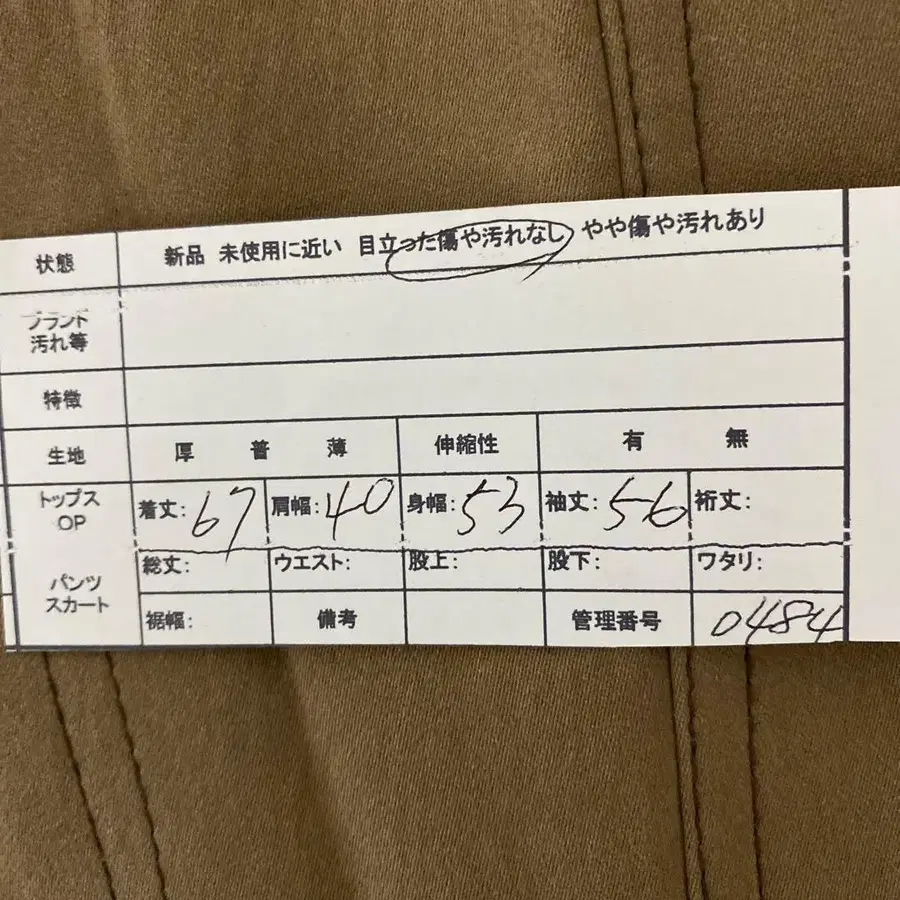 状態 新品 未使用に近い 目立った傷や汚れなし やや傷や汚れあり
ブランド
汚れ等
特徴
生地 厚 普 薄 伸縮性 有 無
トップス
OP
着丈: 67 肩幅: 40 身幅: 53 袖丈: 56 裄丈:
パンツ
スカート
総丈: ウエスト: 股上: 股下: ワタリ:
裾幅: 備考 管理番号 0484